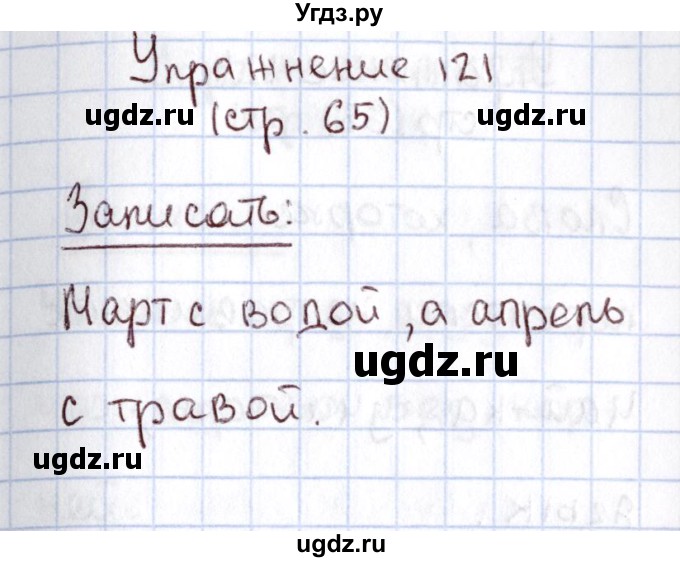 Угдз.ру
Упражнение 121
ugdz.ru (стр. 65) ugdz.ru
Записать:
Март с водой, а апрель
ugdz.ru
с травой.
ugdz.ru
ugdz.ru